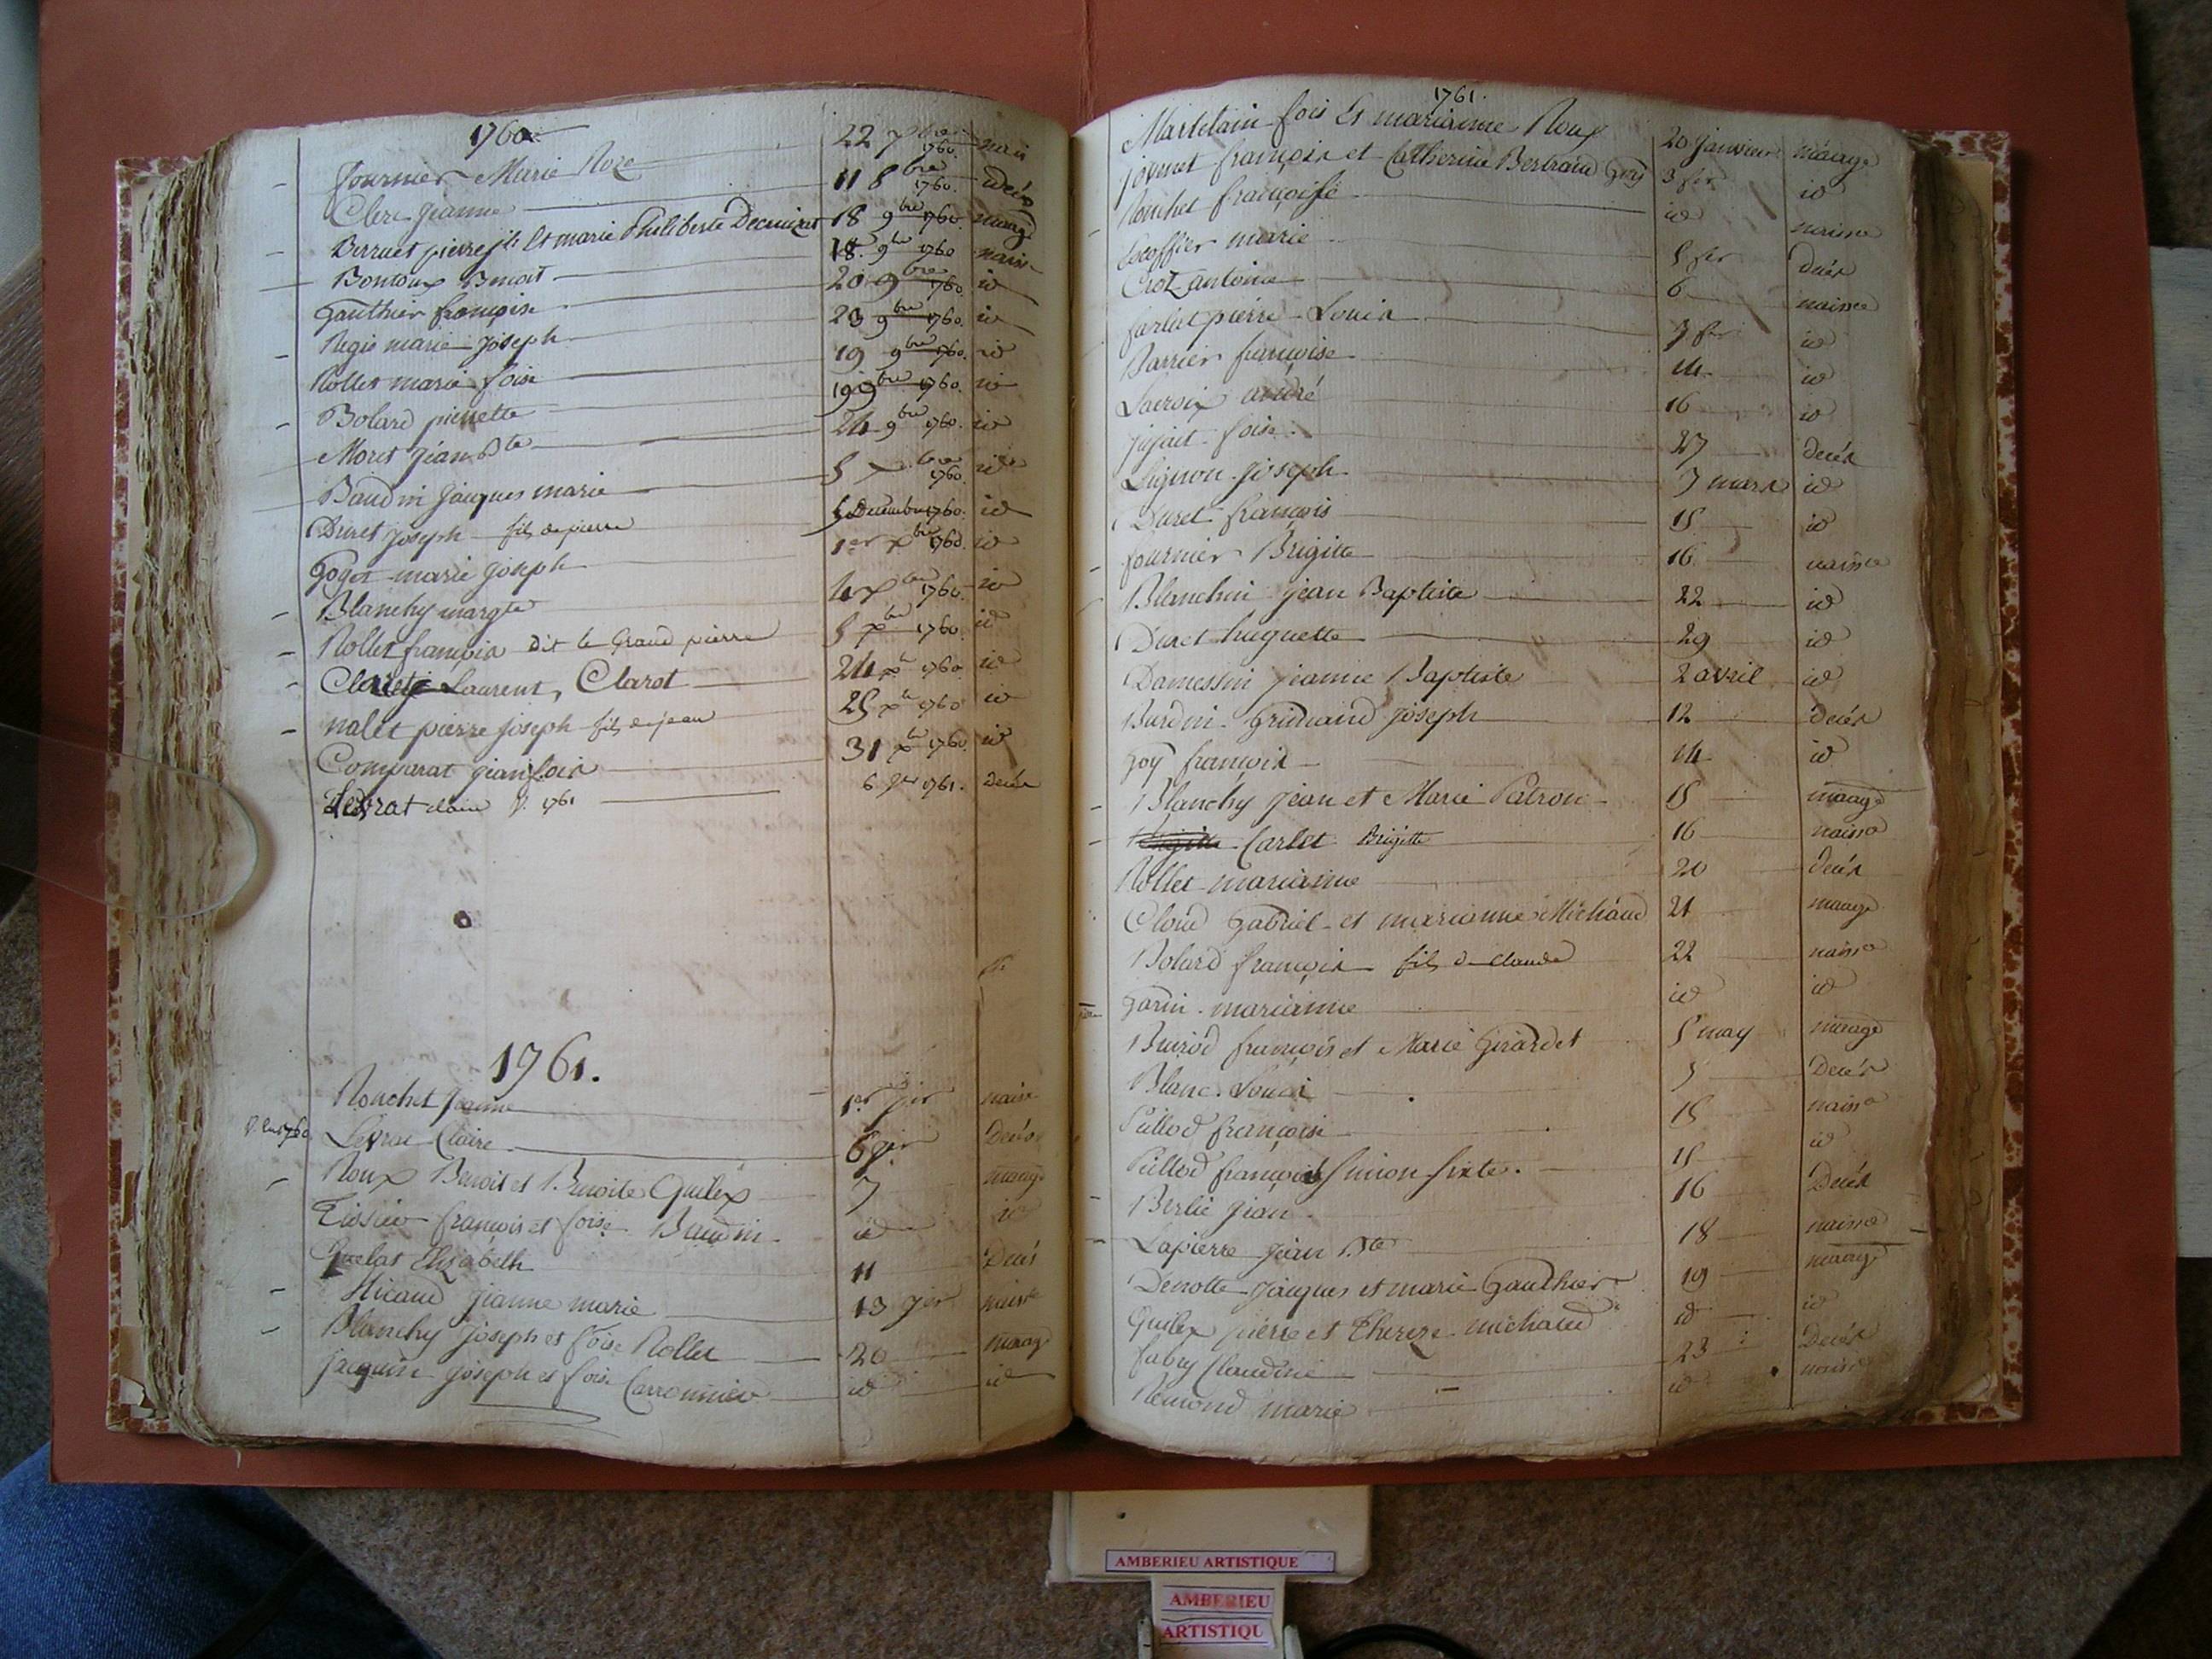 1760
Fournier Marie Roze 22 7bre 1760. nais
Clerc jeanne 11 8bre 1760. decés
Berruet pierre jh Et marie Philiberte 18 9bre 1760. maage
Bontoux Benoit 18. 9bre 1760 naisse
gauthier françoise 20 9bre 1760. id
Regis marie joseph 23 9bre 1760. id
Rollet marie foise 19 9bre 1760. id
Bolard pierrette 19 9bre 1760. id
Moret jean bte 24 9bre 1760. id
Baudin jacques marie 5 xbre 1760. id
Duret joseph fils de pierre 5 Decembre 1760. id
goget marie joseph 1er xbre 1760. id
Blanchy margte 4 xbre 1760. id
Rollet françois dit le Grand pierre 5 xbre 1760. id
Laurent, Clarot 24 xbre 1760. id
nalet pierre joseph fils de jean 25 xbre 1760 id
Comparat jean fois 31 xbre 1760. id
Levrat claire V. 1761 6 jer 1761. Decés
1761.
Rouchet jeanne 1er jer naisse
V. en 1760. Levrat Claire 6 jer. Decés
Roux Benoit et Benoite Quilex 7 maage
Tissier françois et foise Baudin id id
Quelas Elizabeth 11 Decés
Micaud jeanne marie 13 jer naisse
Blanchy joseph et foise Rollet 20 maage
jacquin joseph et foise Carronnier id id
1761.
Martelain fois Et marianne Roux 20 janvier maage
jovenet françois et Catherine Bertrand 3 fer id
Rouchet françoise id naisse
Escoffier marie 5 fer decés
Croz antoine 6 naisse
farlat pierre Louis 7 fer id
Barrier françoise 14 id
Lacroix andré 16 id
jujat foise 27 decés
Lignon joseph 7 mars id
Duret françois 15 id
fournier Brigitte 16 naisse
Blanchin jean Baptiste 22 id
Duret huguette 29 id
Damessin jeanne Baptiste 2 avril id
Burdin Grumand joseph 12 decés
goy françois 14 id
Blanchy jean et Marie Patron 15 maage
Carlet Brigitte 16 naisse
Rollet marianne 20 decés
Cloud gabriel et marianne Michaud 21 maage
Bolard françois fils de claude 22 naisse
garin marianne id id
Buirod françois et Marie girardet 5 may maage
Blanc Louis 5 Decés
Pillod françoise 15 naisse
Pillod françois Simion Sixte. 15 id
Berlie jean 16 Decés
Lapierre jean Bte 18 naisse
Denotte jacques et marie gauthier 19 maage
Quilex pierre et Thereze michaud id id
fabry Claudine 23 Decés
Remond marie id naisse
AMBERIEU ARTISTIQUE
AMBERIEU
ARTISTIQU